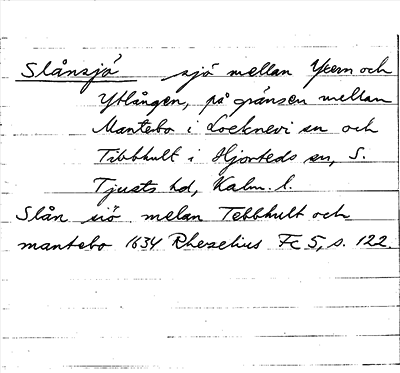 Slånsjö sjö mellan Yxern och
Ytlången, på gränsen mellan
Mantebo i Locknevi sn och
Tibbhult i Hjorteds sn, S.
Tjusts hd, Kalm. l.
Slån siö melan Tebbhult och
mantebo 1634 Rhezelius Fc 5, s. 122.